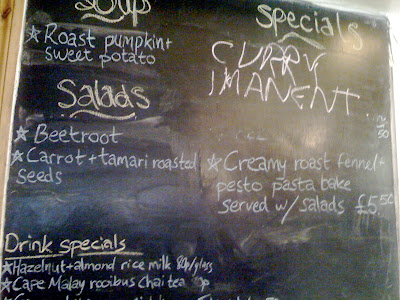 Soup
Roast pumpkin+
sweet potato
Salads
Beetroot
Carrot + tamari roasted
seeds
specials
CURRY
IMANENT
Creamy roast fennel+
pesto pasta bake
served w/ salads £5.50
Drink specials
Hazelnut+almond rice milk 80p/glass
Cape Malay rooibus Chai tea